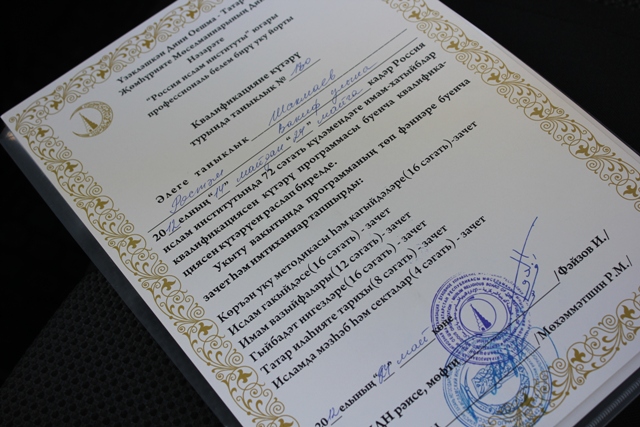 Үзәкләшкән Дини Оешма - Татар
Җөмһүрияте Мөселманнарының Дини
Нәзарәте
"Россия ислам институты" югары
профессиональ белем бирү уку йорты
Квалификацияне күтәрү
турында таныклык №
Әлеге таныклык Шакиев
Рөстәм Вакыйф улына
2012 елның "14" майдан "24" майга кадәр Россия
ислам институтында 72 сәгать күләмендәге имам-хатыйблар
квалификациясен күтәрү программасы буенча квалифика-
циясен күтәрүен раслап бирелде.
Укыту вакытында программаның төп фәннәре буенча
зачет һәм имтиханнар тапшырды:
Көръән уку методикасы һәм кагыйдәләре(16 сәгать)-зачет
Ислам гакыйдәсе(16 сәгать) - зачет
Имам вазыйфалары(12 сәгать) - зачет
Гыйбадәт нигезләре(16 сәгать) - зачет
Татар илаһияте тарихы(8 сәгать) - зачет
Исламда мәзһәб һәм секталар(4 сәгать) - зачет
2012 елның май көне
/Фәйзов И./
ДН рәисе, мөфти /Мөхәммәтшин Р.М./